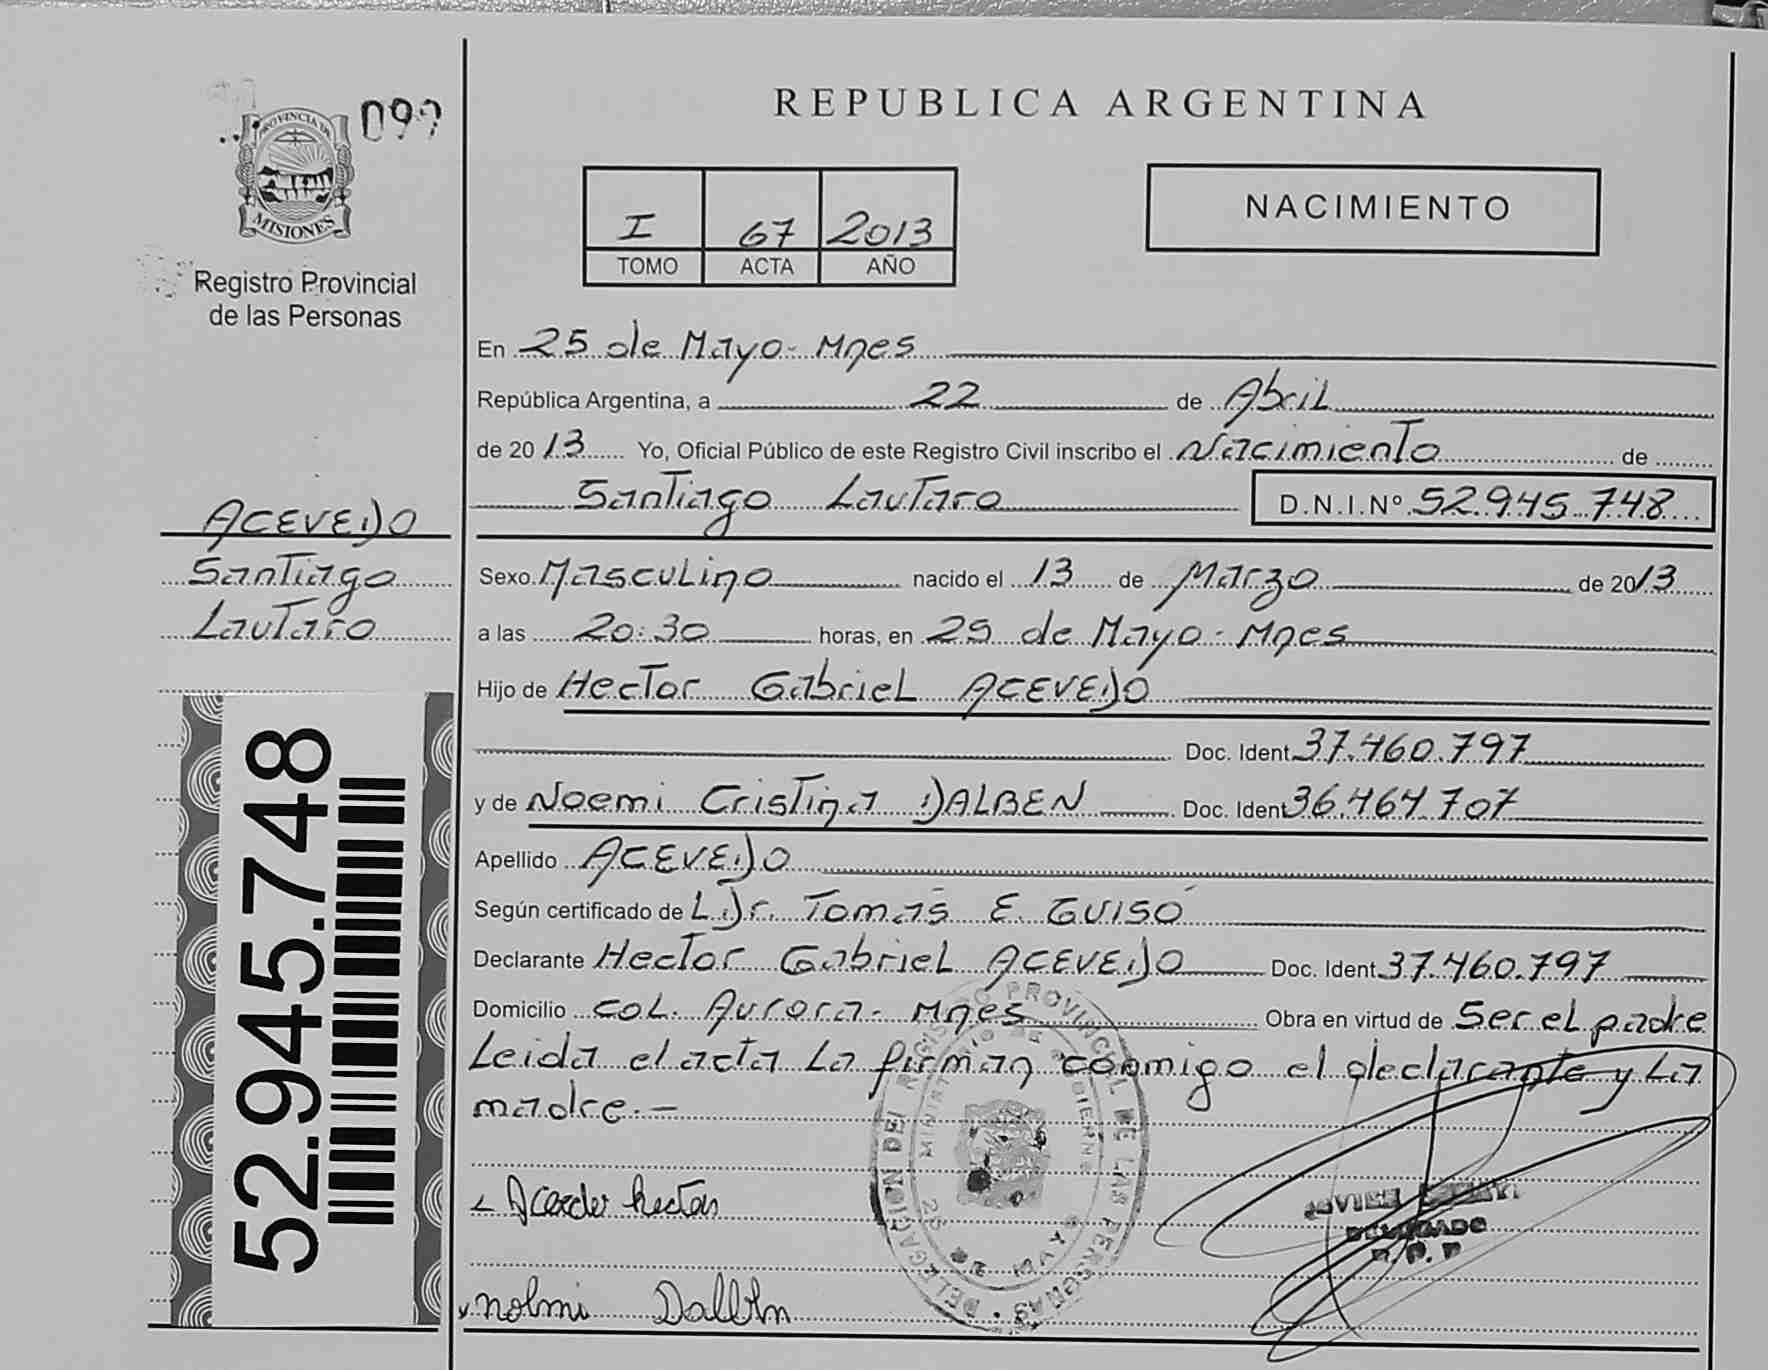 099
PROVINCIA DE
MISIONES
Registro Provincial
de las Personas
ACEVEDO
Santiago
Lautaro
52.945.748
REPUBLICA ARGENTINA
I 67 2013
TOMO ACTA AÑO
NACIMIENTO
En 25 de Mayo - Mnes
República Argentina, a 22 de Abril
de 2013 Yo, Oficial Público de este Registro Civil inscribo el Nacimiento de
Santiago Lautaro D.N.I.Nº 52.945.748
Sexo Masculino nacido el 13 de Marzo de 2013
a las 20:30 horas, en 25 de Mayo - Mnes
Hijo de Hector Gabriel ACEVEDO
Doc. Ident. 37.460.797
y de Noemi Cristina DALBEN Doc. Ident. 36.464.707
Apellido ACEVEDO
Según certificado de L.Dr. Tomás E. GUISO
Declarante Hector Gabriel ACEVEDO Doc. Ident. 37.460.797
Domicilio COL. Aurora - Mnes Obra en virtud de Ser el padre
Leida el acta La firman conmigo el declarante y La
madre.-
hector
DELEGACION DEL REGISTRO PROVINCIAL DE LAS PERSONAS
25 DE MAYO
DELEGADO
R.P.P